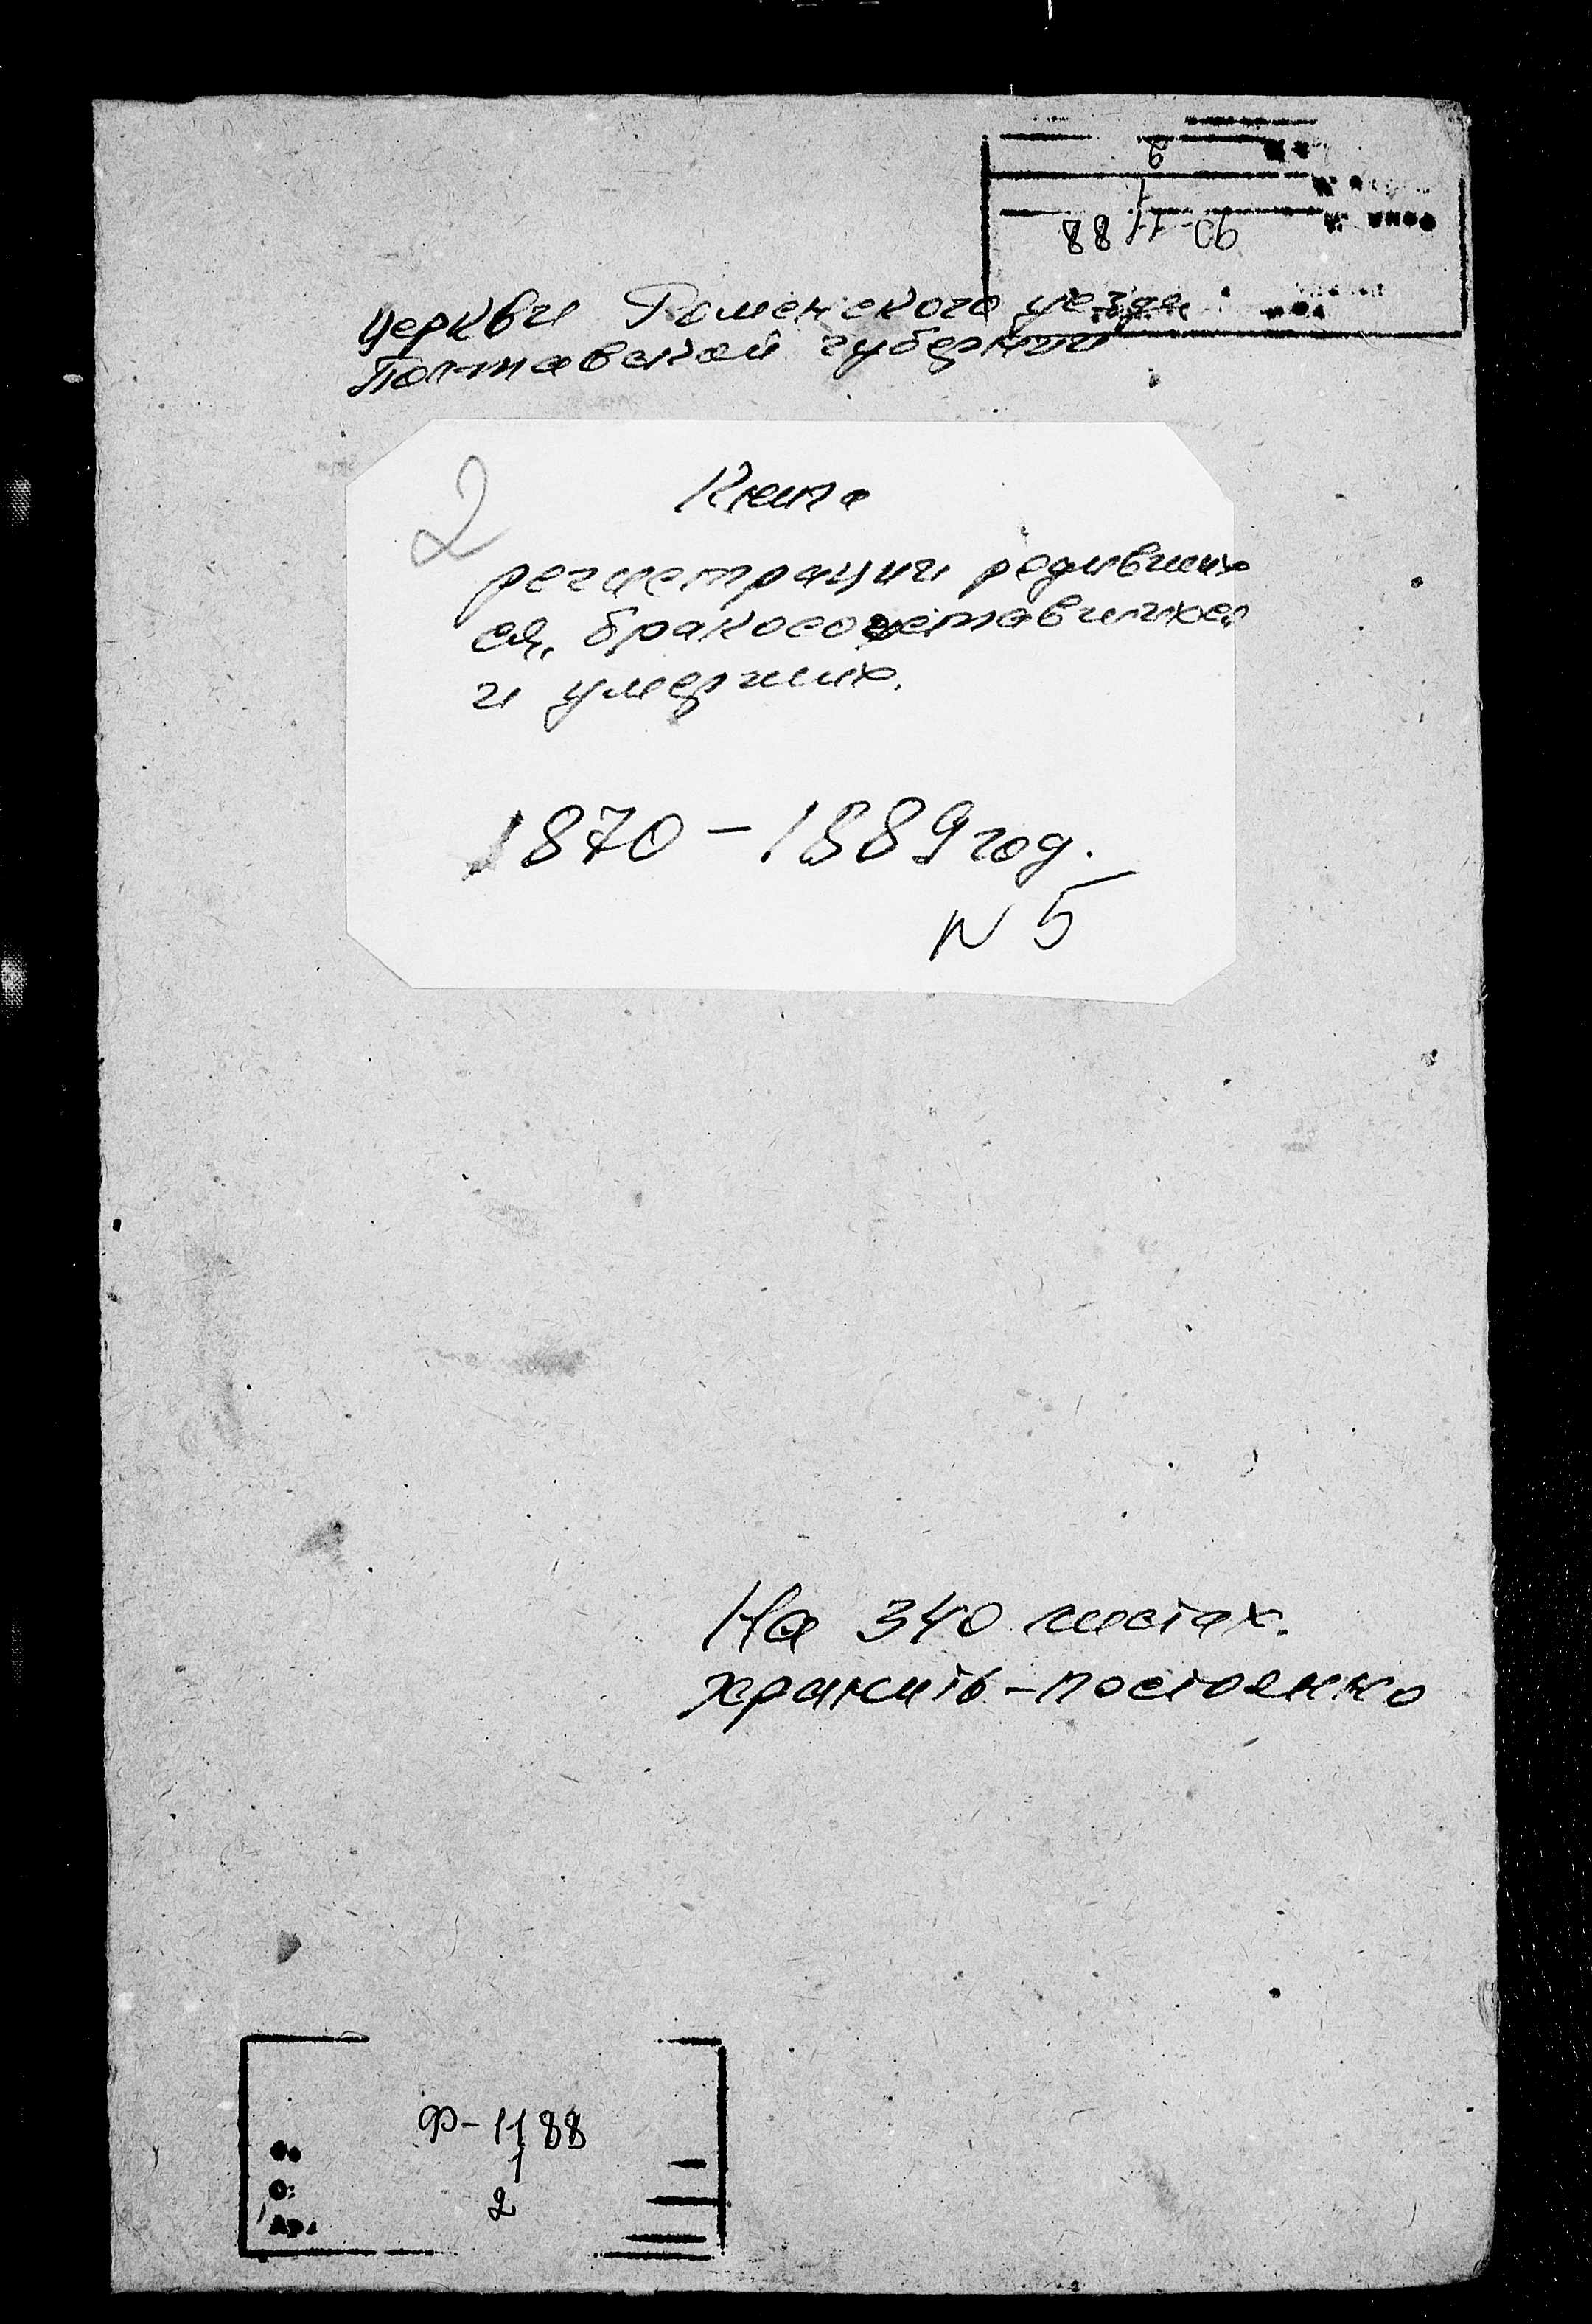 Церкви Роменского уезда
Полтавской губернии
2
Книга
регистрации родивших
ся, бракосочетавшихся
и умерших.
1870 - 1889 год.
N 5
На 340 листах.
хранить - постоянно
Ф-1188
1
2